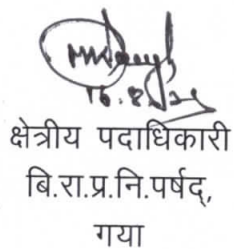 16.8.21
क्षेत्रीय पदाधिकारी
बि.रा.प्र.नि.पर्षद्,
गया